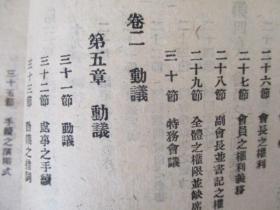 二十六節 會長之權利
二十七節 會員之權利義務
二十八節 副會長並書記之
二十九節 全體之權限並缺席
三十節 特務會議
卷二 動議
第五章 動議
三十一節 動議
三十二節 處事之手續
三十三節
三十五節 手續之演明式